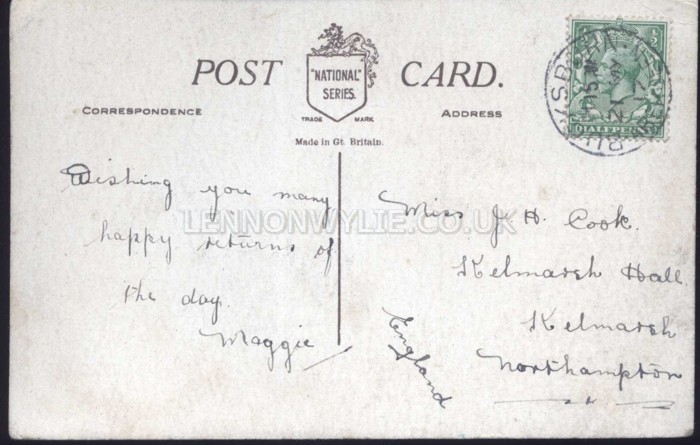 POST CARD.
"NATIONAL"
SERIES.
TRADE MARK
CORRESPONDENCE
ADDRESS
Made in Gt. Britain.
Wishing you many
happy returns of
the day.
Maggie
Miss J H. Cook.
Kelmarsh Hall.
Kelmarsh
Northampton
England
HALFPENNY
LENNONWYLIE.CO.UK